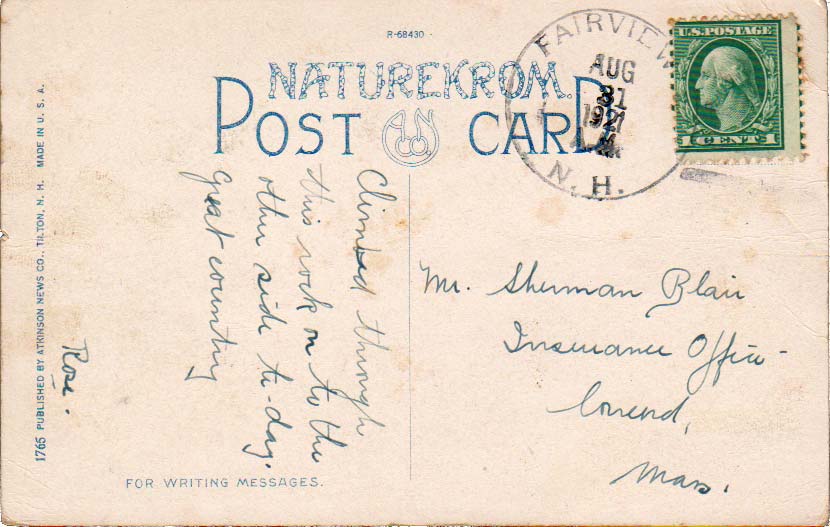 R-68430
NATUREKROM
POST CARD
A.N.Co.
FAIRVIEW
AUG
31
1921
N. H.
U.S. POSTAGE
1 CENT 1
Climbed through
this rock on to the
other side to-day.
Great country
Rose.
Mr. Sherman Blair
Insurance Office
Mass.
FOR WRITING MESSAGES.
1765 PUBLISHED BY ATKINSON NEWS CO., TILTON, N. H. MADE IN U. S. A.